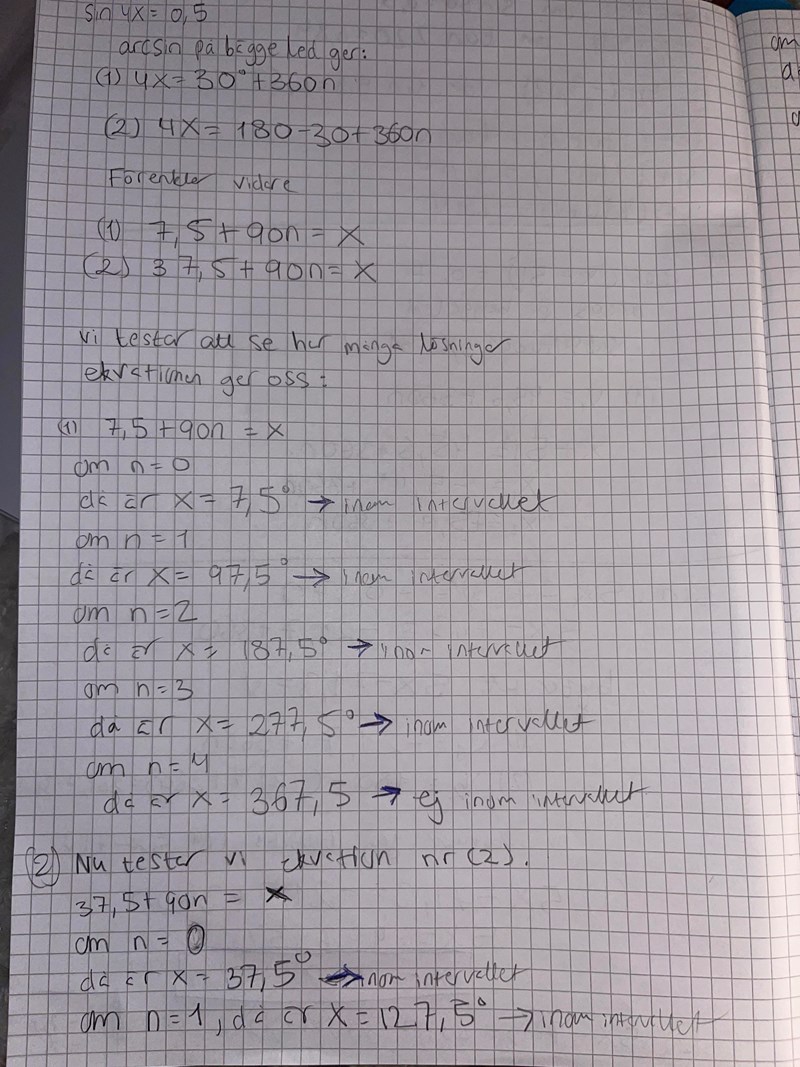 sin 4x = 0,5
arcsin på bägge led ger:
(1) 4x = 30° + 360n
(2) 4x = 180 - 30 + 360n
Förenklar vidare
(1) 7,5 + 90n = x
(2) 37,5 + 90n = x
Vi testar att se hur många lösningar
ekvationen ger oss:
(1) 7,5 + 90n = x
om n = 0
då är x = 7,5° → inom intervallet
om n = 1
då är x = 97,5° → inom intervallet
om n = 2
då är x = 187,5° → inom intervallet
om n = 3
då är x = 277,5° → inom intervallet
om n = 4
då är x = 367,5 → ej inom intervallet
(2) Nu testar vi ekvation nr (2).
37,5 + 90n = x
om n = 0
då är x = 37,5° → inom intervallet
om n = 1, då är x = 127,5° → inom intervallet
om